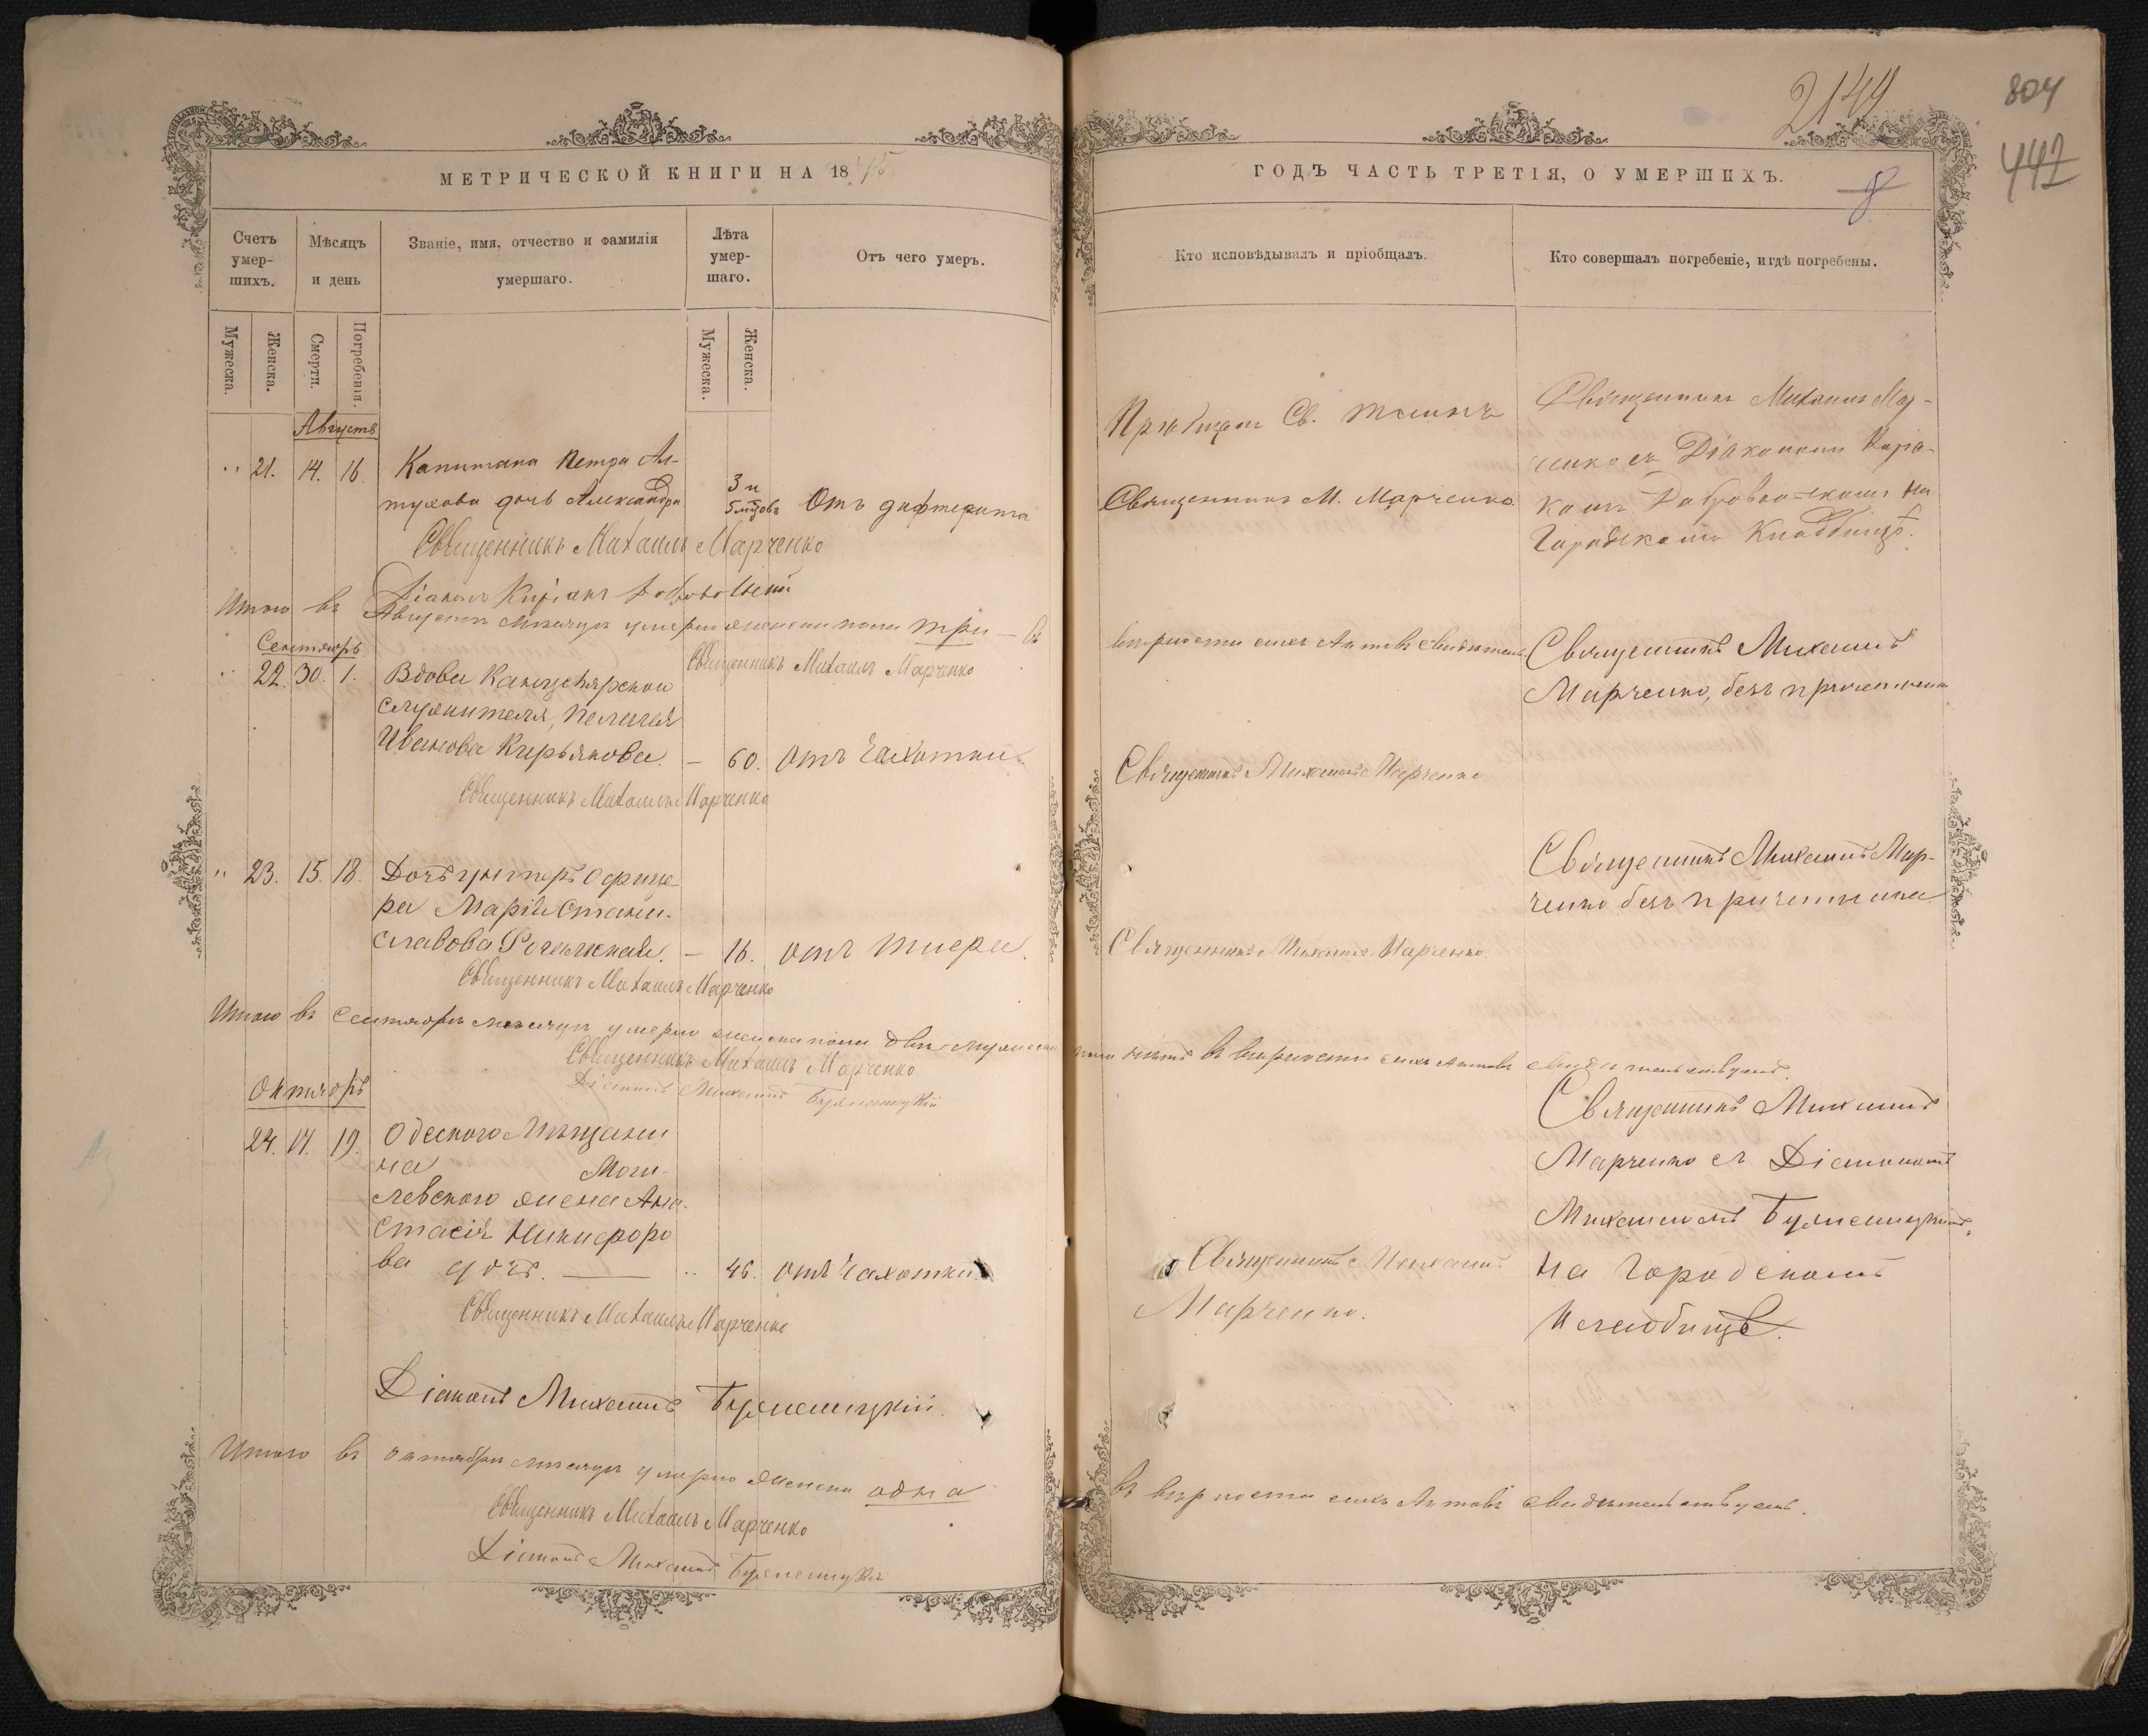 2144
804
442
8
МЕТРИЧЕСКОЙ КНИГИ НА 1875
ГОДЪ ЧАСТЬ ТРЕТІЯ, О УМЕРШИХЪ.
Счетъ умер-шихъ.
Мѣсяцъ и день
Званіе, имя, отчество и фамилія умершаго.
Лѣта умер-шаго.
Отъ чего умеръ.
Кто исповѣдывалъ и пріобщалъ.
Кто совершалъ погребеніе, и гдѣ погребены.
Мужеска.
Женска.
Смерти.
Погребенія.
Мужеска.
Женска.
Августъ
21. 14. 16. Капитана Петра Ал-
тухова дочь Александра
3 и
5 мѣсцовъ Отъ дифтерита
Священникъ Михаилъ Марченко
Діаконъ Киріакъ
Св. Таинъ
Священникъ М. Марченко
Священникъ Михаилъ Мар-
ченко съ Діакономъ Киріа-
комъ на
Городскомъ Кладбищѣ.
Итого въ Августѣ мѣсяцѣ умерло женска пола три — въ
вѣрности сихъ Актовъ
Священникъ Михаилъ Марченко
Сентябрь
22. 30. 1. Вдова Канцелярскаго
служителя, Пелагея
Иванова Кирьякова. — 60. Отъ Чахотки
Священникъ Михаилъ Марченко
Священникъ Михаилъ Марченко
Священникъ Михаилъ
Марченко, безъ причетника
23. 15. 18. Дочь унтеръ Офице-
ра Марія Стани-
славова — 16. отъ тифа.
Священникъ Михаилъ Марченко
Священникъ Михаилъ Марченко.
Священникъ Михаилъ Мар-
ченко безъ причетника
Итого въ Сентябрѣ мѣсяцѣ умерло женска пола двѣ мужеска
пола нѣтъ въ вѣрности сихъ Актовъ свидѣтельствуемъ.
Священникъ Михаилъ Марченко
Діаконъ Михаилъ
Октябрь
24. 17. 19. Одесского Мѣщани
на Моги-
левского жена Ана
стасія Никифоро
ва дочь. — 46. отъ Чахотки
Священникъ Михаилъ Марченко
Діаконъ Михаилъ
Священникъ Михаилъ
Марченко.
Священникъ Михаилъ
Марченко съ Діакономъ
Михаиломъ
на Городскомъ
Кладбищѣ.
Итого въ октябрѣ мѣсяцѣ умерло женска одна
въ вѣрности сихъ Актовъ свидѣтельствуемъ.
Священникъ Михаилъ Марченко
Діаконъ Михаилъ